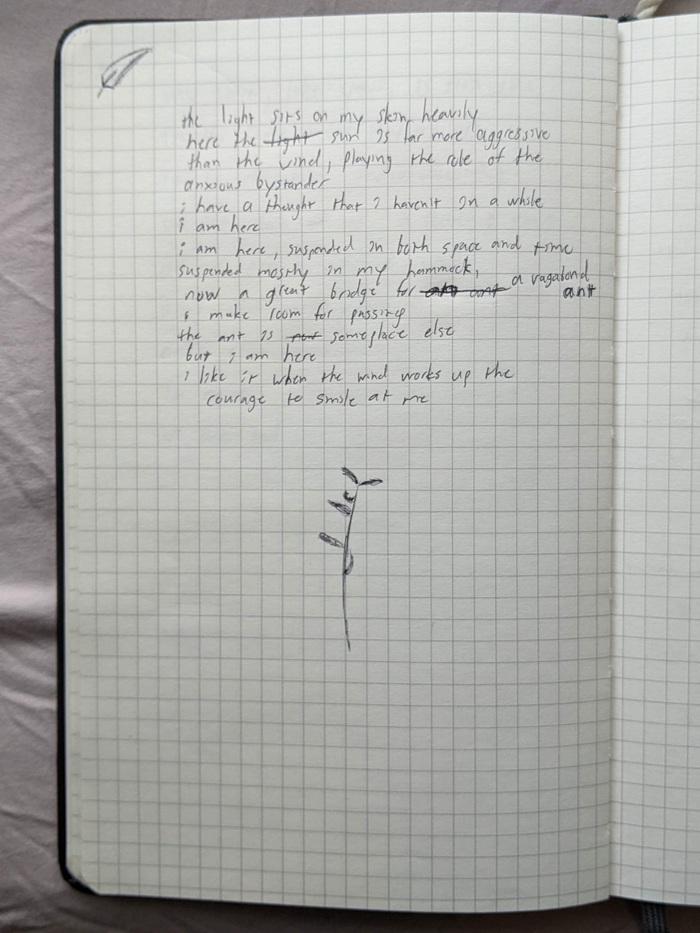 the light sits on my skin heavily
here the light sun is far more aggressive
than the wind, playing the role of the
anxious bystander
i have a thought that i haven't in a while
i am here
i am here, suspended in both space and time
suspended mostly in my hammock,
now a great bridge for ant a vagabond
ant
i make room for passing
the ant is not someplace else
but i am here
i like it when the wind works up the
courage to smile at me